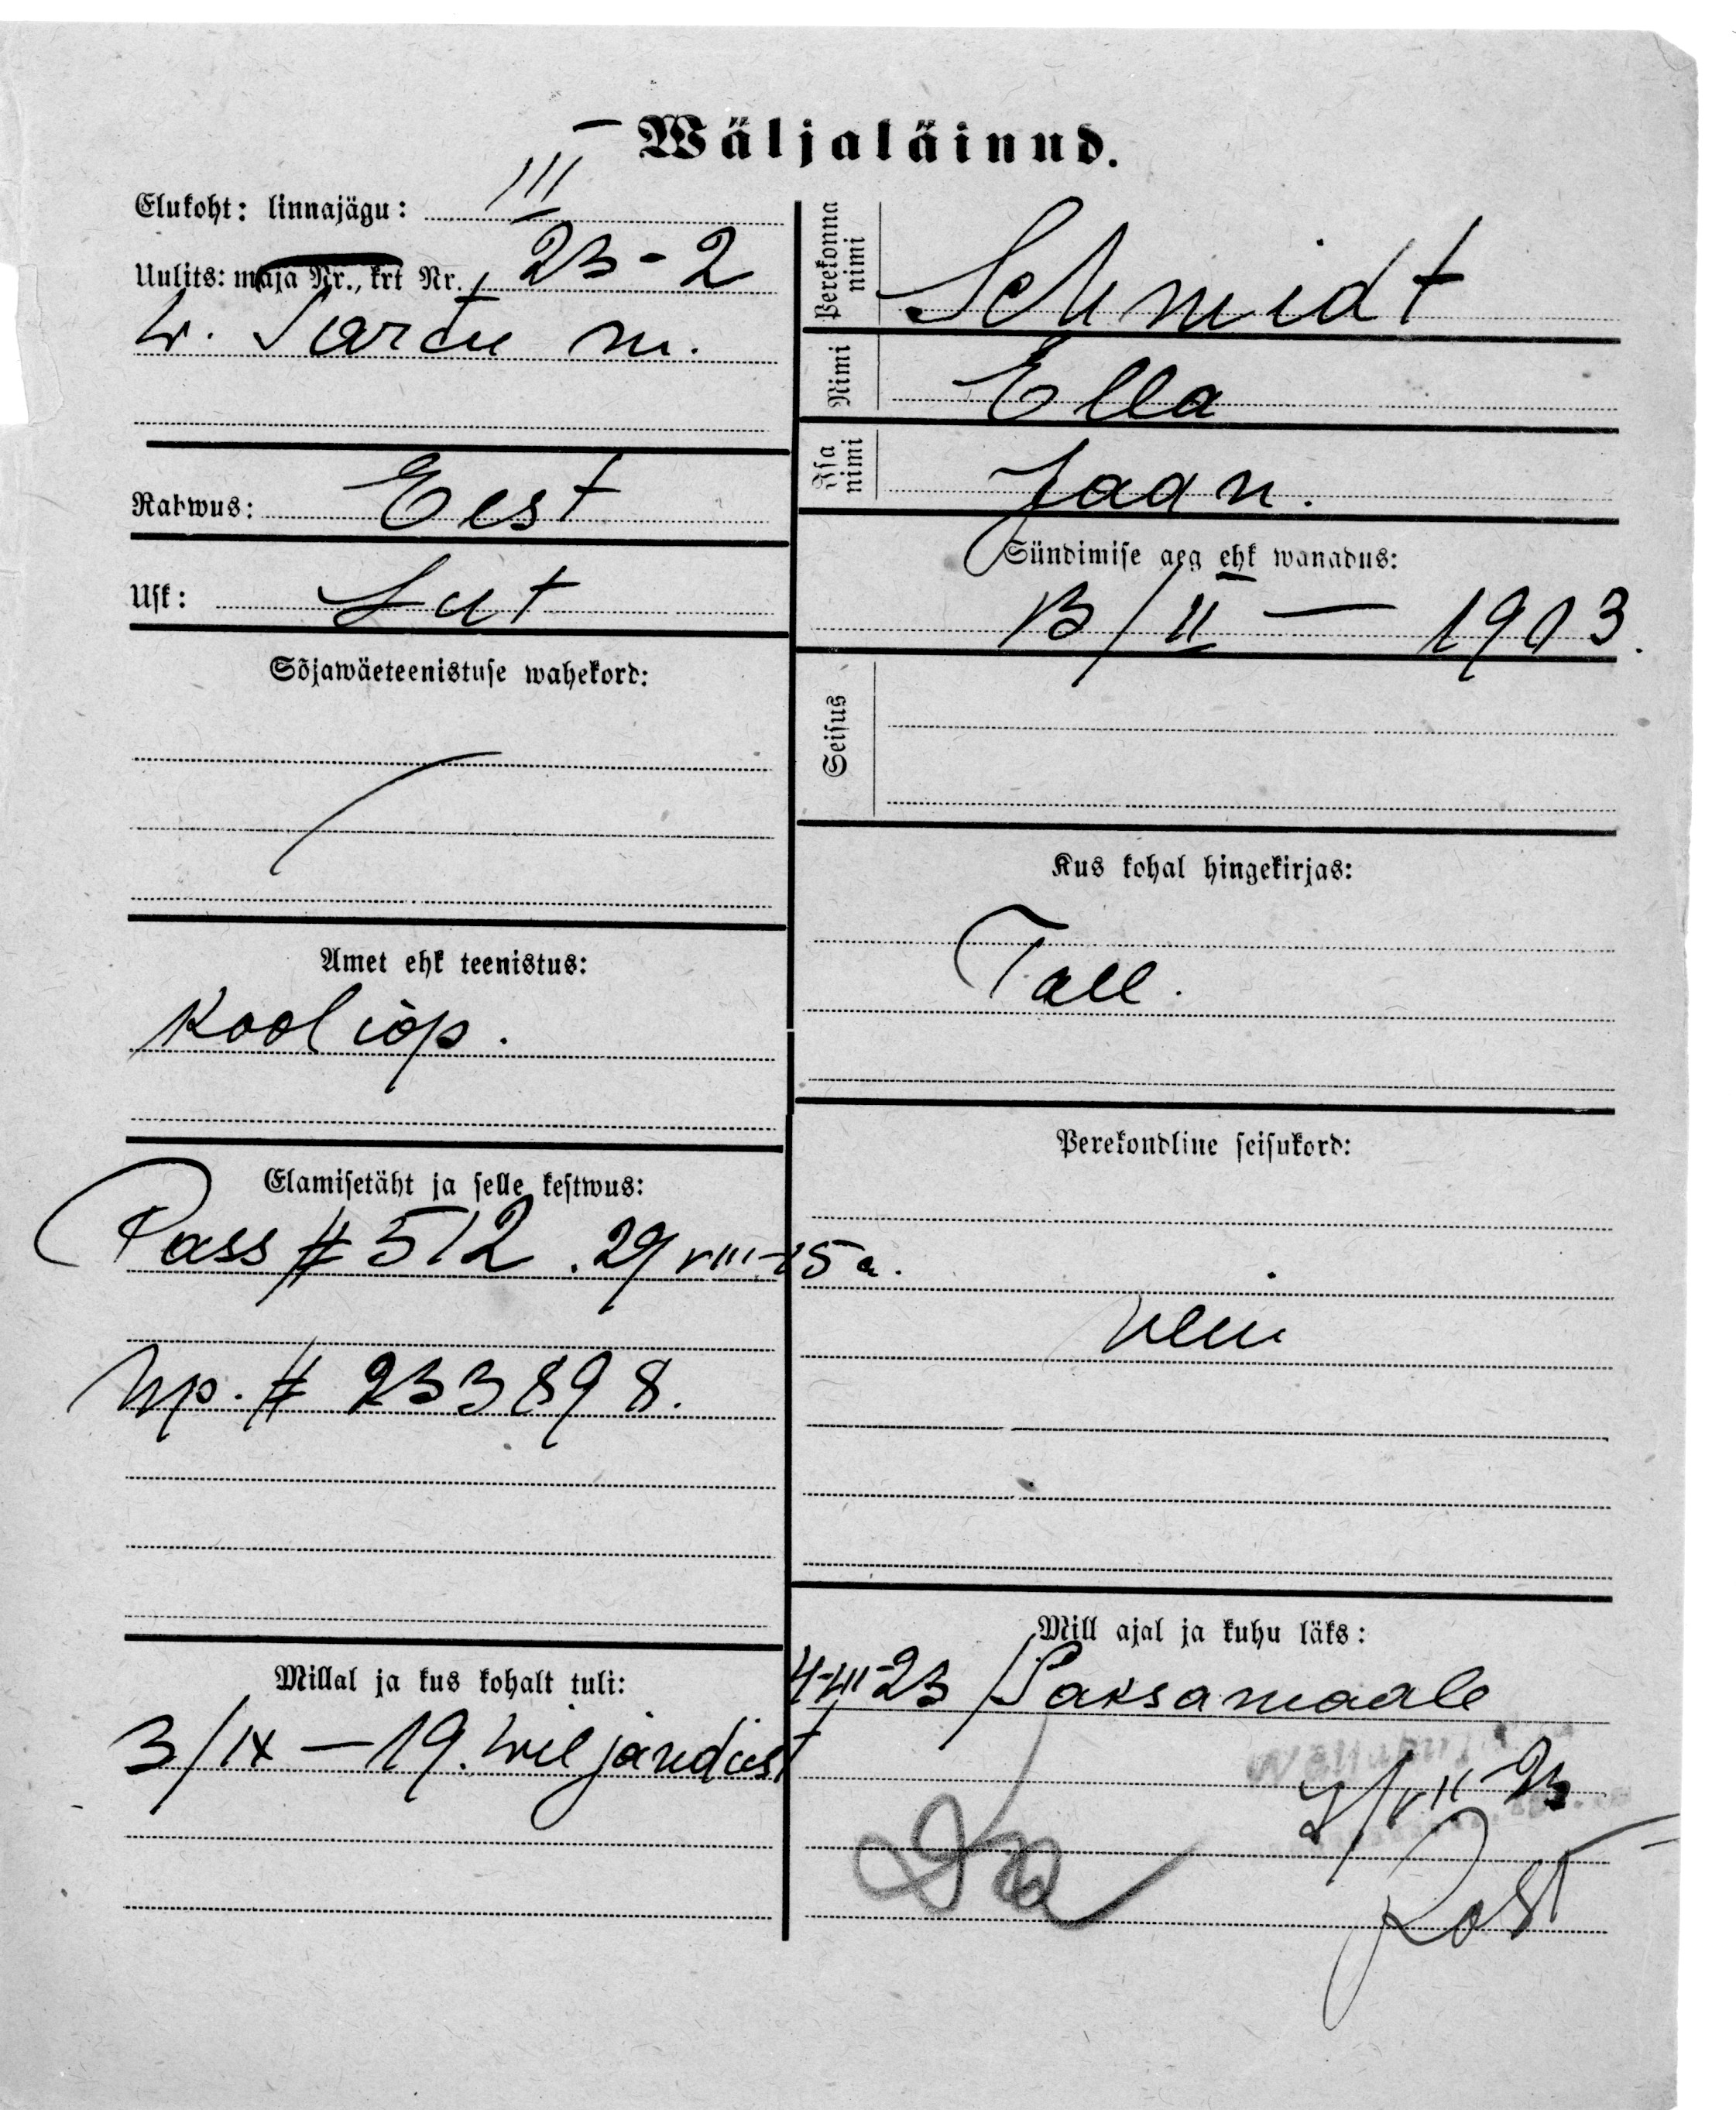 Wäljaläinud.
Elukoht: linnajägu: III
Uulits: maja Nr., krt Nr. 23-2
W. Tartu m.
Rahwus: Eest
Usk: Lut
Sõjawäeteenistuse wahekord:
Amet ehk teenistus:
Kooliõp.
Elamisetäht ja selle kestwus:
Pass # 512. 29/VIII-15 a.
# 233898.
Millal ja kus kohalt tuli:
3/IX — 19. Wiljandist
Perekonna nimi Schmidt
Nimi Ella
Isa nimi Jaan.
Sündimise aeg ehk wanadus:
13/II — 1903.
Seisus
Kus kohal hingekirjas:
Tall.
Perekondline seisukord:
Mill ajal ja kuhu läks:
Saksamaale